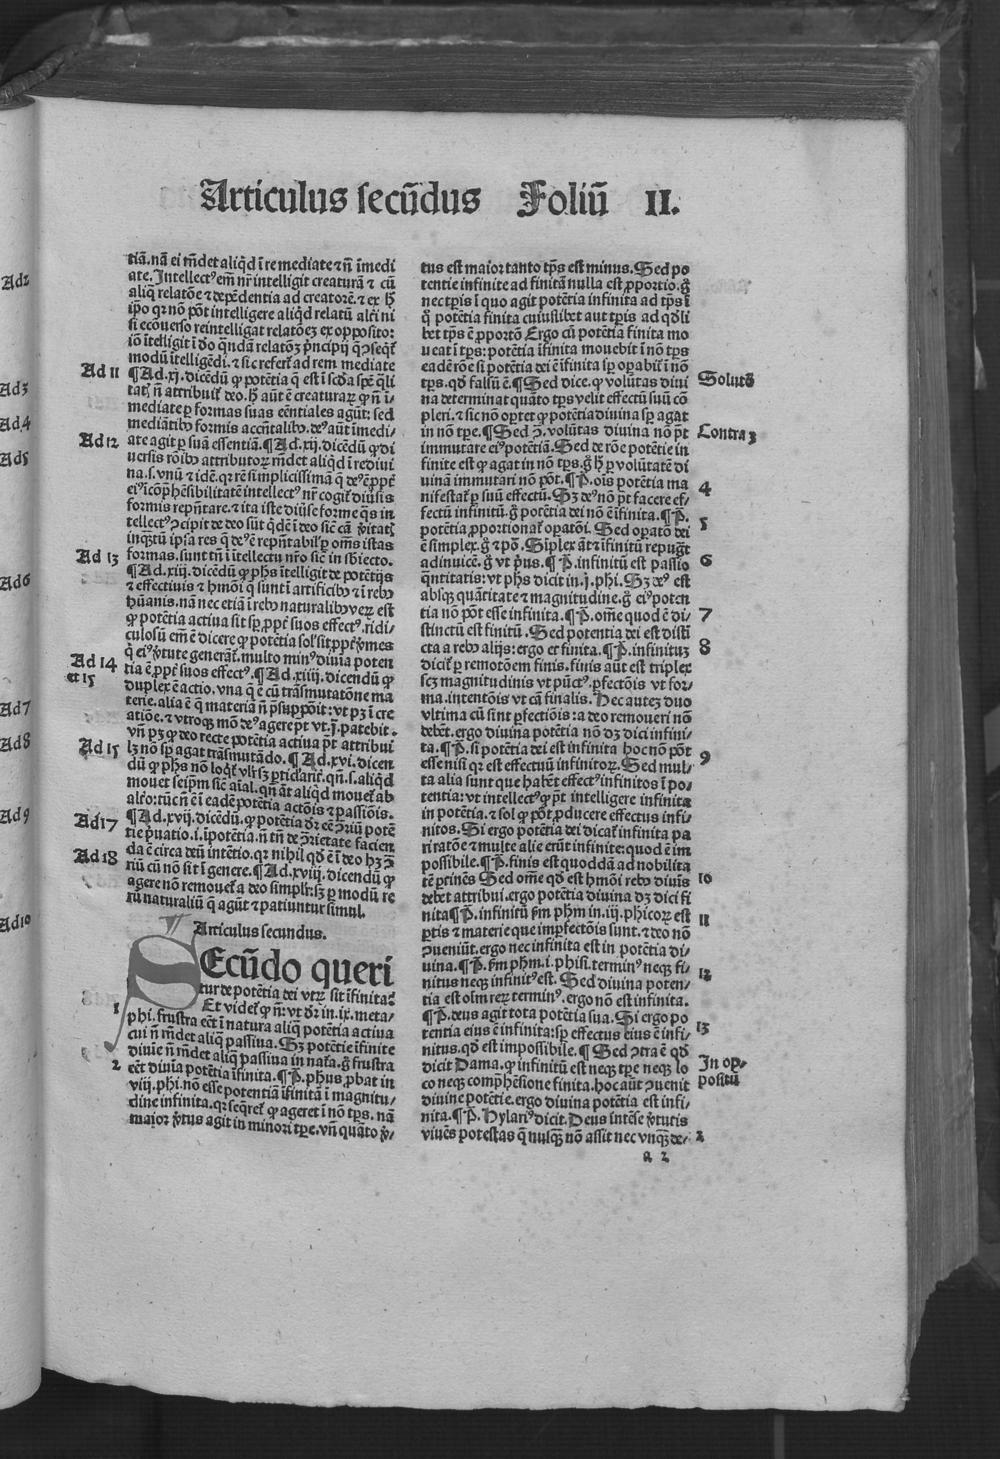 Articulus secūdus Foliū II.
tiā. nā ei rñdet aliqd ī re mediate ⁊ nō īmedi
ate. Intellectꝰ em̄ nr̄ intelligit creaturā ⁊ cū
aliq relatōe ⁊ depēdentia ad creatorē. ⁊ ex h̄
ip̄o qr nō pōt intelligere aliqd relatū alteri ni
si ecōuerso reintelligat relatōeꝫ ex opposito:
iō ītelligit ī do quādā relatōꝫ
modū ītelligēdi. ⁊ sic refert ad rem mediate
Ad 11
¶ Ad. xj. dicēdū ꝙ potētia q̄ est ī scd̄a spē q̄li
tatis nō attribuit deo. h̄ aūt ē creaturaꝝ ꝙ nō ī-
mediate ꝑ formas suas eēntiales agūt: sed
mediātibꝰ formis accn̄talibꝰ. deꝰ aūt īmedi-
Ad 12
ate agit ꝑ suā essentiā. ¶ Ad. xij. dicēdū ꝙ di
uersis rōibꝰ attributoꝝ rñdet aliqd ī re diui
na. s. vnū ⁊ idē. qr rē simplicissimā q̄ deꝰ ē ꝓpt̄
eiꝰ īcōp̄hēsibilitatē intellectꝰ nr̄ cogit diūsis
formis rep̄ntare. ⁊ ita iste diūse forme q̄s in
tellectꝰ ↄcipit de deo sūt q̄dē ī deo sic ī cā v̄itatis
inqͣtū ip̄a res q̄ deꝰ ē rep̄ntabilis ꝑ om̄s istas
Ad 13
formas. sunt tn̄ ī intellectu nr̄o sic in sbiecto.
¶ Ad. xiij. dicēdū ꝙ ph̄s ītelligit de potētijs
⁊ effectiuis ⁊ hmōi q̄ sunt ī artificibꝰ ⁊ ī rebꝰ
hūanis. nā nec etiā ī rebꝰ naturalibꝰ veꝝ est
ꝙ potētia actiua sit sp̄ ꝓpt̄ suos effectꝰ. ridi-
culosū em̄ ē dicere ꝙ potētia solis sit ꝓpt̄ v̄mes
q̄ eiꝰ v̄tute generāt. multo minꝰ diuīa poten
Ad 14
et 15
tia ē ꝓpt̄ suos effectꝰ. ¶ Ad. xiiij. dicendū ꝙ
duplex ē actio. vna q̄ ē cū trāsmutatōne ma
terie. alia ē q̄ materiā nō p̄supponit: vt pꝫ ī cre
atiōe. ⁊ vtroqꝫ mō deꝰ agere pt vt. j. patebit.
vn̄ pꝫ ꝙ deo recte potētia actiua pt attribui
Ad 15
lꝫ nō sp̄ agat trāsmutādo. ¶ Ad. xvi. dicen
dū ꝙ ph̄s nō loqt vlt̄ sꝫ ꝑticlariter. qn̄. s. aliqd
mouet seip̄m sic aīal. qn̄ āt aliqd mouet ab
alt̄o: tūc nō ē ī eadē potētia actōis ⁊ passiōis.
Ad 17
¶ Ad. xvij. dicēdū. ꝙ potētia dr̄ eē ↄriū potē
tie p̄uatio. i. īpotētia. nō tn̄ de ↄrietate facien
Ad 18
da ē circa deū intētio. qr nihil qd̄ ē ī deo hꝫ ↄ
riū cū nō sit ī genere. ¶ Ad. xviij. dicendū ꝙ
agere nō remouet a deo simplr̄: sꝫ ꝑ modū re
rū naturaliū q̄ agūt ⁊ patiuntur simul.
Articulus secundus.
SEcūdo queri
tur de potētia dei vtꝝ sit īfinita?
1
Et videt ꝙ nō: vt dr̄ in. ix. meta-
phi. frustra eēt ī natura aliq potētia actiua
cui nō rñdet aliq passiua. Sꝫ potētie īfinite
diuīe nō rñdet aliq passiua in natā. g̊ frustra
2
eēt diuīa potētia īfinita. ¶ P̄. phꝰ ꝓbat in
viij. phi. nō esse potentiā īfinitā ī magnitu-
dine infinita. qr seqret ꝙ ageret ī nō tp̄s. nā
maior v̄tus agit in minori tp̄e. vn̄ quāto v̄-
tus est maior tanto tp̄s est minus. Sed po
tentie infinite ad finitā nulla est ꝓportio. g̊
nec tp̄is ī quo agit potētia infinita ad tp̄s ī
q̊ potētia finita cuiuslibet aut tp̄is ad qd̄li
bet tp̄s ē ꝓportō Ergo cū potētia finita mo
ueat ī tp̄s: potētia īfinita mouebit ī nō tp̄s
eadē rōe si potētia dei ē īfinita sp̄ opabit ī nō
Solutō
tp̄s. qd̄ falsū ē. ¶ Sed dice. ꝙ volūtas diui
na determinat quāto tp̄s velit effectū suū cō
pleri. ⁊ sic nō oꝑtet ꝙ potētia diuina sp̄ agat
Contra 3
in nō tp̄e. ¶ Sed ↄ. volūtas diuina nō p̄t
immutare eiꝰ potētiā. Sed de rōe potētie in
finite est ꝙ agat in nō tp̄s. g̊ h̄ ꝑ volūtatē di
uinā immutari nō pōt. ¶ P̄. ois potētia ma
4
nifestat ꝑ suū effectū. Sꝫ deꝰ nō pt facere ef-
fectū infinitū. g̊ potētia dei nō ē īfinita. ¶ P̄.
5
potētia ꝓportionat opatōi. Sed opatō dei
ē simplex. g̊ ⁊ pō. Siplex āt ⁊ īfinitū repugt
adinuicē. g̊ vt p̄us. ¶ P̄. infinitū est passio
6
q̄ntitatis: vt ph̄s dicit in. j. phi. Sꝫ deꝰ est
absqꝫ quātitate ⁊ magnitudine. g̊ eiꝰ poten
tia nō pōt esse infinita. ¶ P̄. om̄e quod ē di-
7
stinctū est finitū. Sed potentia dei est disti
cta a rebꝰ alijs: ergo et finita. ¶ P̄. infinituꝫ
8
dicit ꝑ remotōem finis. finis aūt est triplex
scꝫ magnitudinis vt pūctꝰ. ꝑfectōis vt for-
ma. intentōis vt cā finalis. Hec autez duo
vltima cū sint ꝑfectiōis: a deo remoueri nō
debēt. ergo diuina potētia nō dꝫ dici infini-
ta. ¶ P̄. si potētia dei est infinita hoc nō pōt
esse nisi qr est effectuū infinitoꝝ. Sed mul-
9
ta alia sunt que habēt effectꝰ infinitos ī po-
tentia: vt intellectꝰ q̄ pt intelligere infinita
in potētia. ⁊ sol q̄ pōt ꝓducere effectus infi-
nitos. Si ergo potētia dei dicat infinita pa
ri ratōe ⁊ multe alie erūt infinite: quod ē im
possibile. ¶ P̄. finis est quoddā ad nobilita
10
tē ꝑtinēs Sed om̄e qd̄ est hmōi rebꝰ diuīs
debet attribui. ergo potētia diuina dꝫ dici fi
nita ¶ P̄. infinitū ẜm phm̄ in. iij. phicoꝝ est
11
ꝑtis ⁊ materie que imꝑfectōis sunt. ⁊ deo nō
ↄueniūt. ergo nec infinita est in potētia di-
uina. ¶ P̄. ẜm phm̄. i. phisi. terminꝰ neqꝫ fi-
12
nitus neqꝫ infinitꝰ est. Sed diuina poten-
tia est oīm reꝝ terminꝰ. ergo nō est infinita.
¶ P̄. deus agit tota potētia sua. Si ergo po
13
tentia eius ē infinita: sp̄ effectus eius ē infi-
nitus. qd̄ est impossibile. ¶ Sed ↄtra ē qd̄
In op-
positū
dicit Dama. ꝙ infinitū est neqꝫ tp̄e neqꝫ lo
co neqꝫ comp̄hēsione finita. hoc aūt ↄuenit
diuine potētie. ergo diuina potētia est infi-
nita. ¶ P̄. Hylariꝰ dicit. Deus intēse v̄tutis
2
viuēs potestas q̄ nusqꝫ nō assit nec vnqꝫ de-
a 2
Ad2
Ad3
Ad4
Ad5
Ad6
Ad7
Ad8
Ad9
Ad10